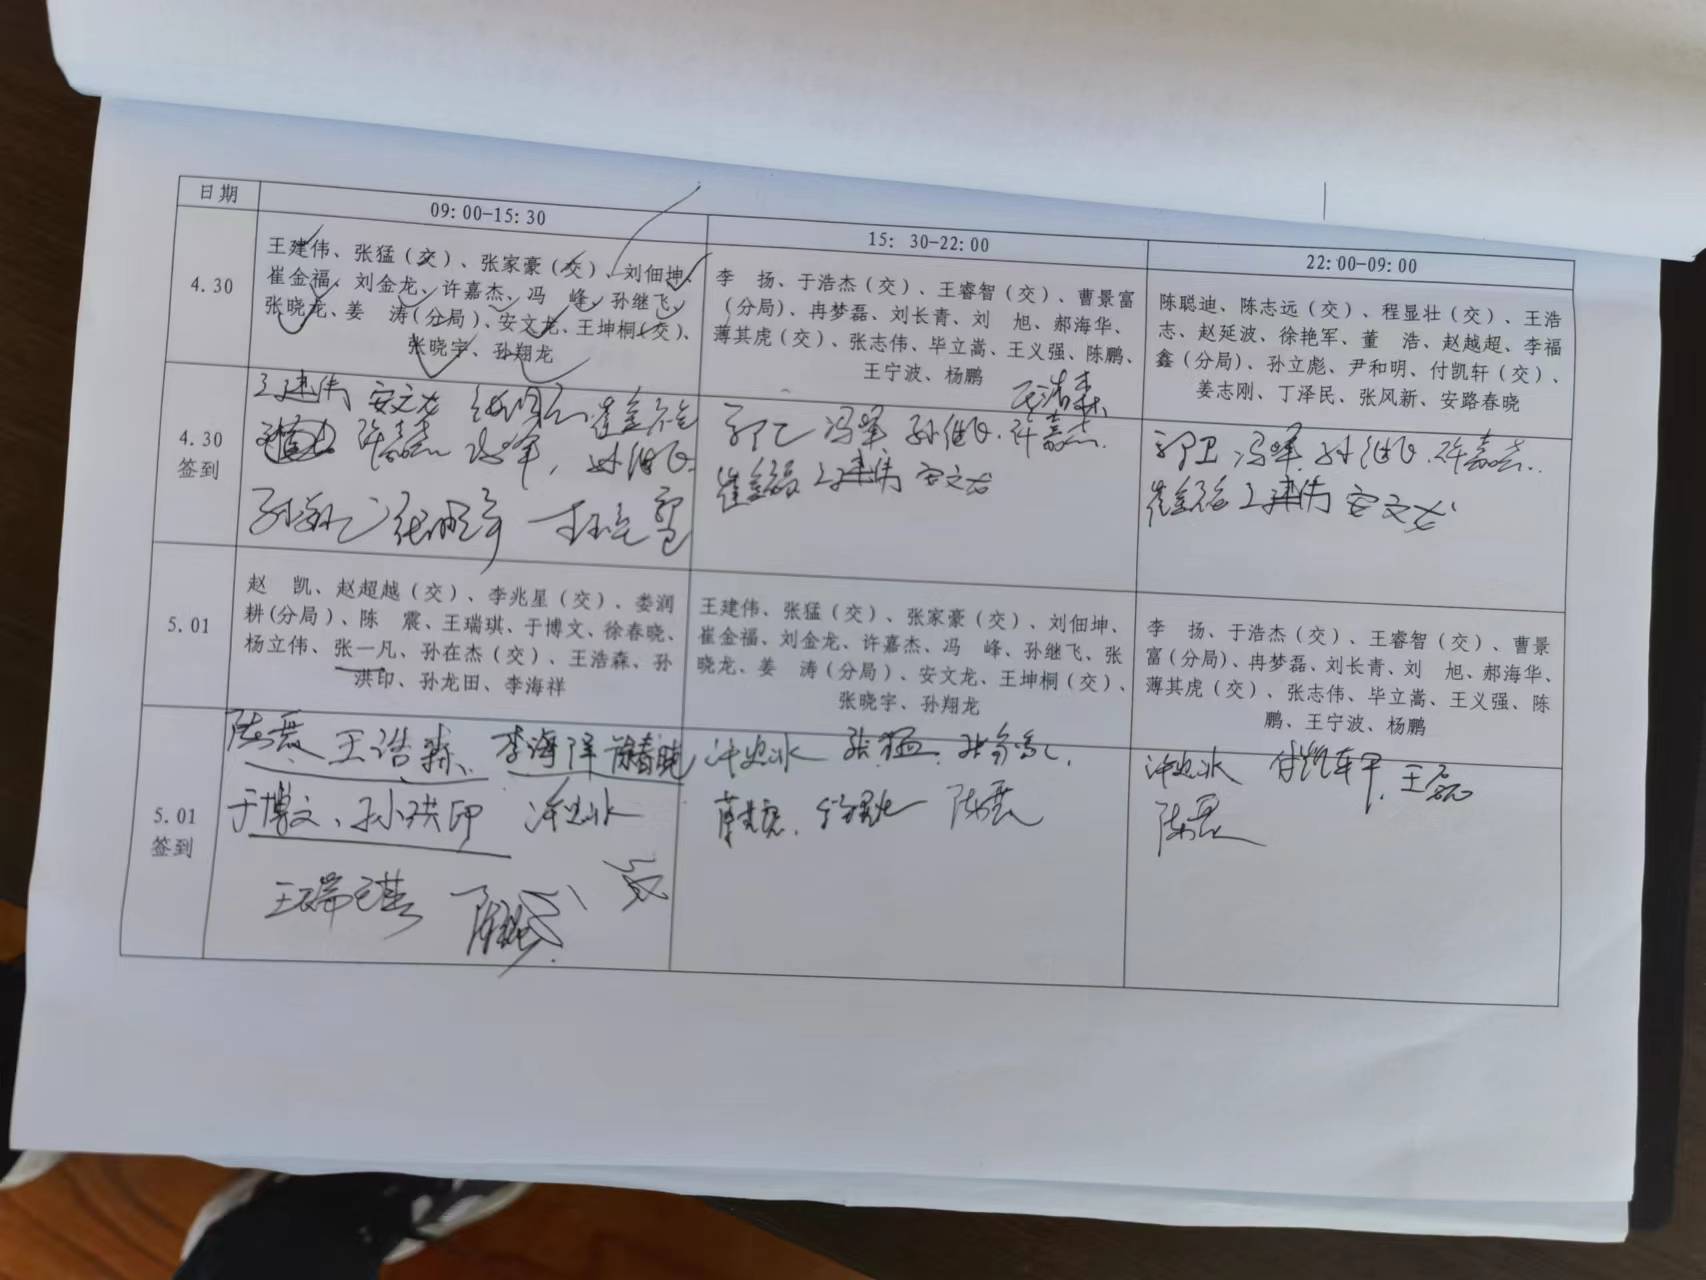 日期
09:00-15:30
15: 30-22:00
22:00-09:00
4.30
王建伟、张猛（交）、张家豪（交）、刘佃坤、
崔金福、刘金龙、许嘉杰、冯　峰、孙继飞、
张晓龙、姜　涛(分局)、安文龙、王坤桐(交)、
张晓宇、孙翔龙
李　扬、于浩杰（交）、王睿智（交）、曹景富
（分局）、冉梦磊、刘长青、刘　旭、郝海华、
薄其虎（交）、张志伟、毕立嵩、王义强、陈鹏、
王宁波、杨鹏
陈聪迪、陈志远（交）、程显壮（交）、王浩
志、赵延波、徐艳军、董　浩、赵越超、李福
鑫（分局）、孙立彪、尹和明、付凯轩（交）、
姜志刚、丁泽民、张风新、安路春晓
4.30
签到
王建伟 安文龙 崔金福
许嘉杰 冯峰, 孙继飞
孙翔龙 张晓宇
王浩森
冯峰 孙继飞. 许嘉杰.
崔金福 王建伟 安文龙
郭卫 冯峰. 孙继飞. 许嘉杰..
崔金福 王建伟 安文龙
5.01
赵　凯、赵超越（交）、李兆星（交）、娄润
耕(分局)、陈　震、王瑞琪、于博文、徐春晓、
杨立伟、张一凡、孙在杰（交）、王浩森、孙
洪印、孙龙田、李海祥
王建伟、张猛（交）、张家豪（交）、刘佃坤、
崔金福、刘金龙、许嘉杰、冯　峰、孙继飞、张
晓龙、姜　涛（分局）、安文龙、王坤桐（交）、
张晓宇、孙翔龙
李　扬、于浩杰（交）、王睿智（交）、曹景
富(分局)、冉梦磊、刘长青、刘　旭、郝海华、
薄其虎（交）、张志伟、毕立嵩、王义强、陈
鹏、王宁波、杨鹏
5.01
签到
陈震 王浩森、李海祥 徐春晓
于博文、孙洪印
王瑞琪
张猛. 张家豪.
薄其虎. 陈震
付凯轩. 王磊
陈震